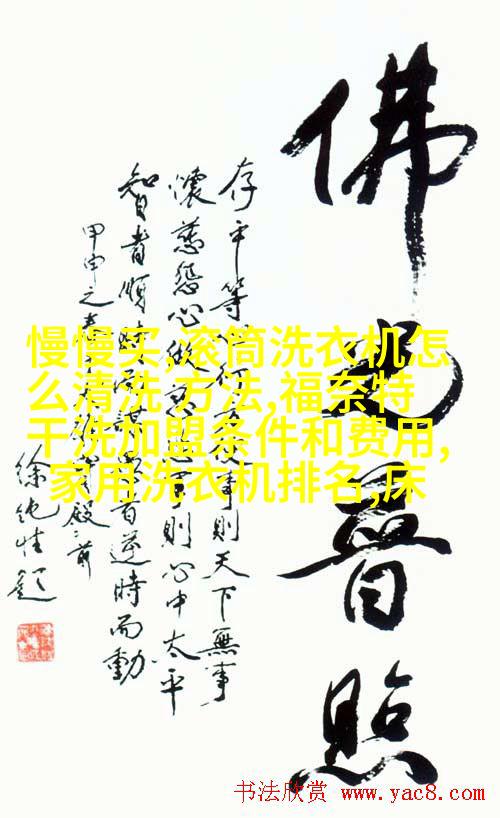 佛光普照
存平等心行方便事則天下無事
懷慈悲心做事則心中太平
智者順時而謀者逆時而動
甲申之春殿前
徐純性題
慢慢买,滚筒洗衣机怎
么清洗 方法,福奈特
干洗加盟条件和费用,
家用洗衣机排名,床
书法欣赏 www.yac8.com